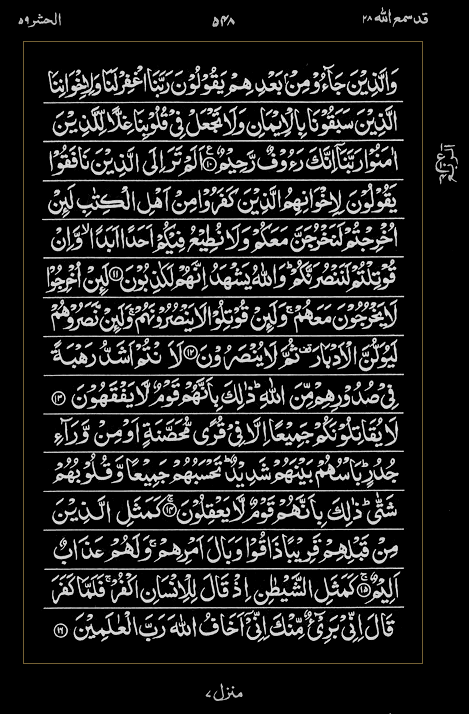 قد سمع الله ٢٨ ٥٤٨ الحشر ٥٩
وَالَّذِيْنَ جَآءُوْ مِنْۢ بَعْدِهِمْ يَقُوْلُوْنَ رَبَّنَا اغْفِرْ لَنَا وَلِاِخْوَانِنَا
الَّذِيْنَ سَبَقُوْنَا بِالْاِيْمَانِ وَلَا تَجْعَلْ فِيْ قُلُوْبِنَا غِلًّا لِّلَّذِيْنَ
اٰمَنُوْا رَبَّنَآ اِنَّكَ رَءُوْفٌ رَّحِيْمٌ ۝١٠ اَلَمْ تَرَ اِلَى الَّذِيْنَ نَافَقُوْا
يَقُوْلُوْنَ لِاِخْوَانِهِمُ الَّذِيْنَ كَفَرُوْا مِنْ اَهْلِ الْكِتٰبِ لَئِنْ
اُخْرِجْتُمْ لَنَخْرُجَنَّ مَعَكُمْ وَلَا نُطِيْعُ فِيْكُمْ اَحَدًا اَبَدًا ۙ وَّاِنْ
قُوْتِلْتُمْ لَنَنْصُرَنَّكُمْ ؕ وَاللّٰهُ يَشْهَدُ اِنَّهُمْ لَكٰذِبُوْنَ ۝١١ لَئِنْ اُخْرِجُوْا
لَا يَخْرُجُوْنَ مَعَهُمْ ۚ وَلَئِنْ قُوْتِلُوْا لَا يَنْصُرُوْنَهُمْ ۚ وَلَئِنْ نَّصَرُوْهُمْ
لَيُوَلُّنَّ الْاَدْبَارَ ۫ ثُمَّ لَا يُنْصَرُوْنَ ۝١٢ لَاَنْتُمْ اَشَدُّ رَهْبَةً
فِيْ صُدُوْرِهِمْ مِّنَ اللّٰهِ ؕ ذٰلِكَ بِاَنَّهُمْ قَوْمٌ لَّا يَفْقَهُوْنَ ۝١٣
لَا يُقَاتِلُوْنَكُمْ جَمِيْعًا اِلَّا فِيْ قُرًى مُّحَصَّنَةٍ اَوْ مِنْ وَّرَآءِ
جُدُرٍ ؕ بَاْسُهُمْ بَيْنَهُمْ شَدِيْدٌ ؕ تَحْسَبُهُمْ جَمِيْعًا وَّقُلُوْبُهُمْ
شَتّٰى ؕ ذٰلِكَ بِاَنَّهُمْ قَوْمٌ لَّا يَعْقِلُوْنَ ۝١٤ كَمَثَلِ الَّذِيْنَ
مِنْ قَبْلِهِمْ قَرِيْبًا ذَاقُوْا وَبَالَ اَمْرِهِمْ ۚ وَلَهُمْ عَذَابٌ
اَلِيْمٌ ۝١٥ كَمَثَلِ الشَّيْطٰنِ اِذْ قَالَ لِلْاِنْسَانِ اكْفُرْ ۚ فَلَمَّا كَفَرَ
قَالَ اِنِّيْ بَرِيْٓءٌ مِّنْكَ اِنِّيْٓ اَخَافُ اللّٰهَ رَبَّ الْعٰلَمِيْنَ ۝١٦
منزل ٧